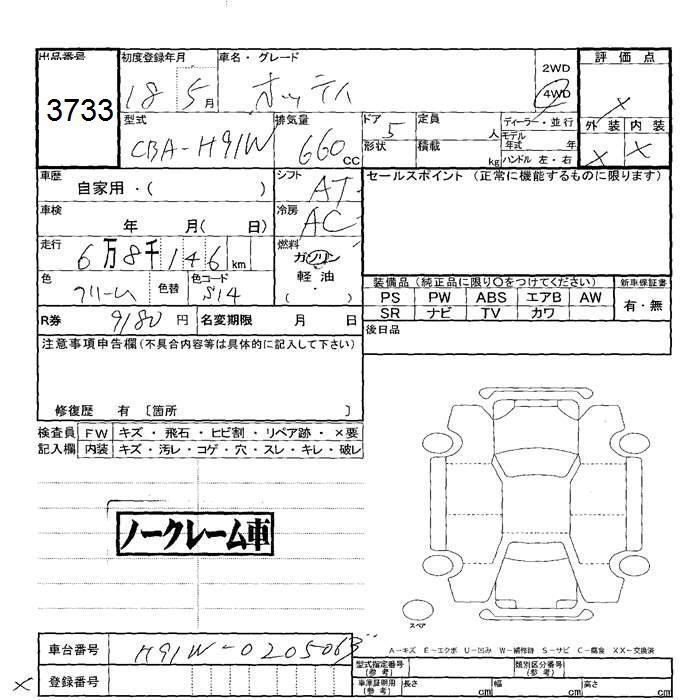 出品番号
3733
初度登録年月
18 5月
車名・グレード
オッティ
2WD
4WD
評価点
×
外装 内装
× ×
型式
CBA-H91W
排気量
660cc
ドア 5
形状
定員 人
積載 kg
ディーラー・並行
モデル年式 年
ハンドル 左・右
車歴
自家用・( )
シフト
AT
セールスポイント (正常に機能するものに限ります)
車検
年 月( 日)
冷房
AC
走行
6万8千146km
燃料
ガソリン
軽油
( ・ )
色
クリーム
色替
色コード
S14
装備品 (純正品に限り○をつけてください)
PS PW ABS エアB AW
SR ナビ TV カワ
新車保証書
有・無
R券 9180円
名変期限 月 日
後日品
注意事項申告欄(不具合内容等は具体的に記入して下さい)
修復歴 有 〔箇所 〕
検査員 FW キズ・飛石・ヒビ割・リペア跡・×要
記入欄 内装 キズ・汚レ・コゲ・穴・スレ・キレ・破レ
ノークレーム車
スペア
車台番号 H91W-0205063
A-キズ E-エクボ U-凹み W-補修跡 S-サビ C-腐食 XX-交換済
× 登録番号
型式指定番号(参考) 類別区分番号(参考)
車庫証明用(参考) 長さ cm 幅 cm 高さ cm